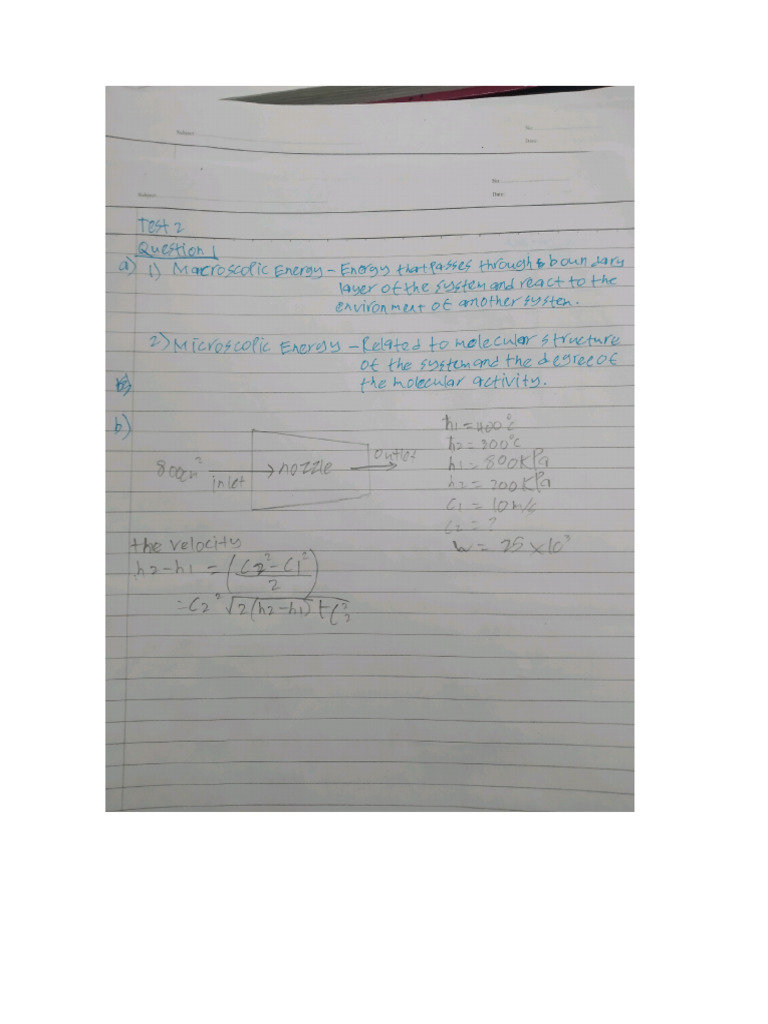 Subject:
No:
Date:
Subject:
No:
Date:
Test 2
Question 1
a) 1) Macroscopic Energy - Energy that passes through boundary
layer of the system and react to the
environment of another system.
2) Microscopic Energy - Related to molecular structure
of the system and the degree of
the molecular activity.
b)
800cm²
inlet
nozzle
outlet
h1 = 400°C
h2 = 300°C
h1 = 800KPa
h2 = 200KPa
C1 = 10m/s
C2 = ?
= 25 × 10³
the velocity
h2 - h1 = (C2² - C1² / 2)
= C2² √2(h2-h1) + C²₂